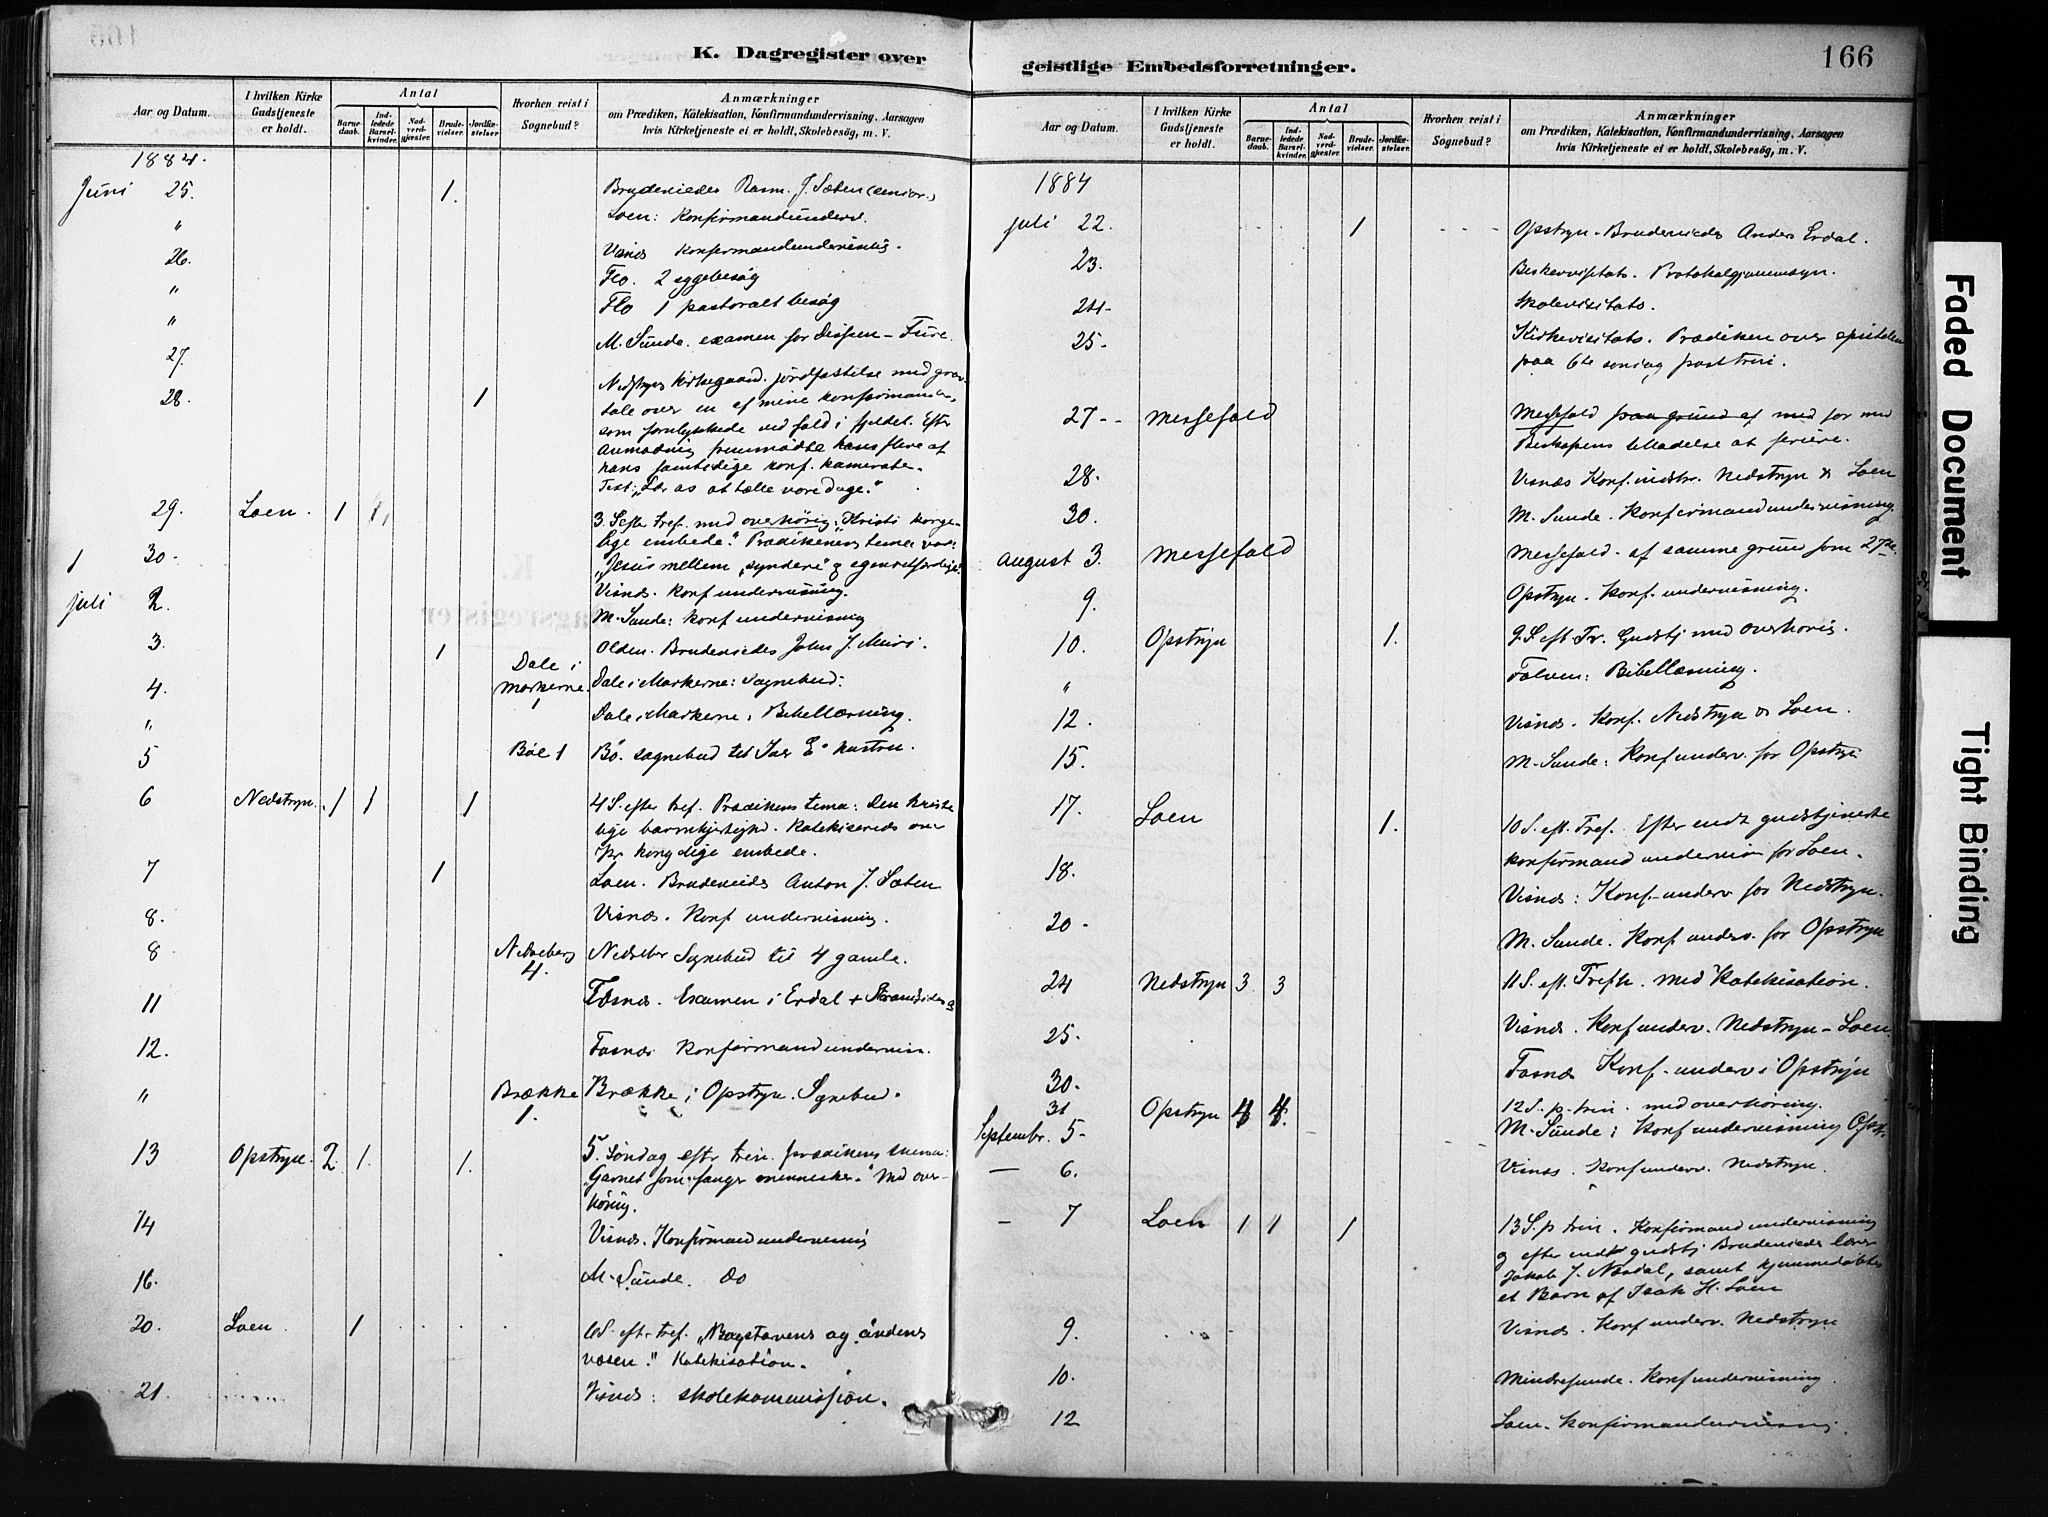 K. Dagregister over
Aar og Datum.
I hvilken Kirke Gudstjeneste er holdt.
Antal
Barne-daab.
Ind-ledede Barsel-kvinder.
Nad-verd-gjester.
Brude-vielser.
Jordfæ-stelser
Hvorhen reist i Sognebud?
Anmærkninger
om Prædiken, Katekisation, Konfirmandundervisning, Aarsagen
hvis Kirketjeneste ei er holdt, Skolebesög, m. V.
1884.
Juni 25. 1. Brudevielse Rasm. J. Sæten
" Loen: Konfirmandunderv.
26. Visnæs Konfirmandundervisnig.
" Flo. 2 sygebesøg
" Flo 1 pastoralt besøg
27. M. Sunde. examen for - Fure
28. 1 Nedstryns Kirkegaard. jordfæstelse med grav-
tale over en af mine konfirmander,
som forulykkede ved fald i fjeldet. Efter
anmodning fremmødte flere af
hans samtidige konf. kamerate.
Text: "Lær os at tælle vore dage."
29. Loen. 1 3. S. efter tref. med overhørig: "Kristi konge-
lige embede." Prædikenens tema var:
"Jesus mellem "syndere" og egenretfærdige"
1 30. Visnæs. Konf undervisning.
juli 2. M. Sunde: konf undervisning
3. 1 Olden. Brudevielse John J. Muri.
4. Dale i Markerne 1 Dale i Markerne: Sognebud:
" Dale i Markerne: Bibellæsning.
5 Böe 1 Bö. sognebud til hustru.
6 Nedstryn. 1 1 1 4 S. efter tref. Prædikens tema: Den kriste
lige barmhjertighd. Katekiseredes over
kongelige embede.
7 1 Loen. Brudevielse Anton J. Sæten
8. Visnæs. Konf undervisning.
8 4. Sognebud til 4 gamle.
11 Fosnæs. Examen i Erdal +
12. Fosnæs Konfirmandundervisn.
" Brække 1. Brække i Opstryn. Sognebud.
13 Opstryn. 2 1. 1. 5. Søndag eftr trin. prædikens thema:
"Garnet som fanger mennesker." Med over-
høring.
14 Visnæs. Konfirmandundervisnig
16. M. Sunde. Do
20. Loen. 1 6 S. eftr tref. "Bogstavens og åndens
væsen." Katekisation.
21. Visnæs: skolekommission.
geistlige Embedsforretninger.
166
Aar og Datum.
I hvilken Kirke Gudstjeneste er holdt.
Antal
Barne-daab.
Ind-ledede Barsel-kvinder.
Nad-verd-gjester.
Brude-vielser.
Jordfæ-stelser.
Hvorhen reist i Sognebud?
Anmærkninger
om Prædiken, Katekisation, Konfirmandundervisning, Aarsagen
hvis Kirketjeneste ei er holdt, Skolebesög, m. V.
1884
juli 22. 1 Opstryn. Brudevielse Anders Erdal.
23. Bispevisitats. Protokolgjennemsyn.
24. Skolevisitats.
25. Kirkevisitats. Prædiken over epistelen
paa 6te søndag post trin.
27 Messefald Messefald paa grund af med
Biskopens tilladelse at feriere.
28. Visnæs Konf. Nedstryn & Loen
30. M. Sunde. Konfirmandundervisning.
august 3. Messefald Messefald. af samme grund som 27de
9. Opstryn. Konf. undervisning.
10. Opstryn 1. 9. S eft Tr. Gudstj med overhøris.
" Folven: Bibellæsning.
12. Visnæs. Konf. Nedstryn & Loen.
15. M. Sunde: Konf underv. for Opstryn
17. Loen 1. 10 S. eft. Tref. Efter endt gudstjeneste
konfirmand undervisn for Loen.
18. Visnæs: Konf. underv for Nedstryn.
20. M. Sunde. Konf underv. for Opstryn
24 Nedstryn 3 3 11 S. eft. Trefh. med Katekisation.
25. Visnæs. Konf underv. Nedstryn - Loen
30. Fosnæs Konf. underv i Opstryn
31 Opstryn 4 4. 12 S. p. trin. med overhøring.
Septembr. 5. M. Sunde: Konf undervisning Opst.
— 6. Visnæs. Konf underv. Nedstryn.
— 7 Loen 1 1 1 13 S. p trin. Konfirmandundervisning
og efter endt gudstj Brudevielse lærer
Jakob J. Næsdal, samt hjemmedøbtes
et Barn af Isak H. Loen
9. Visnæs. Konf underv. Nedstryn
10. Mindresunde. Konf undervisning.
12 Loen. Konfirmandundervisni
Faded Document
Tight Binding